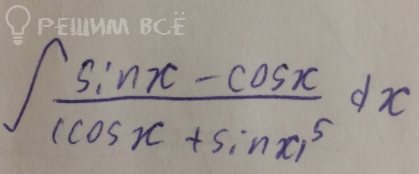 РЕШИМ ВСЁ
∫ (sinx - cosx) / (cosx + sinx)^5 dx